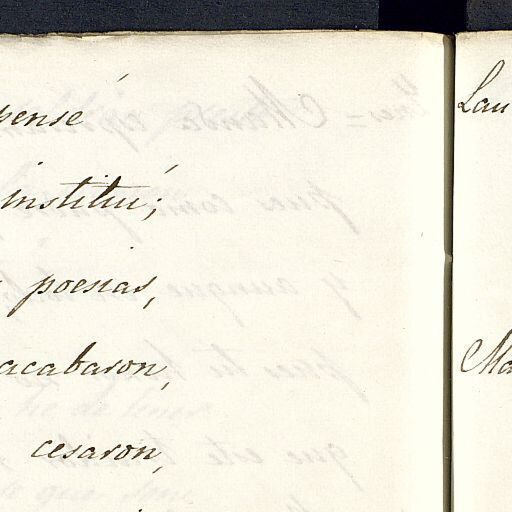 pensé
institui;
poesias,
acabaron,
cesaron,
Lau
Ma